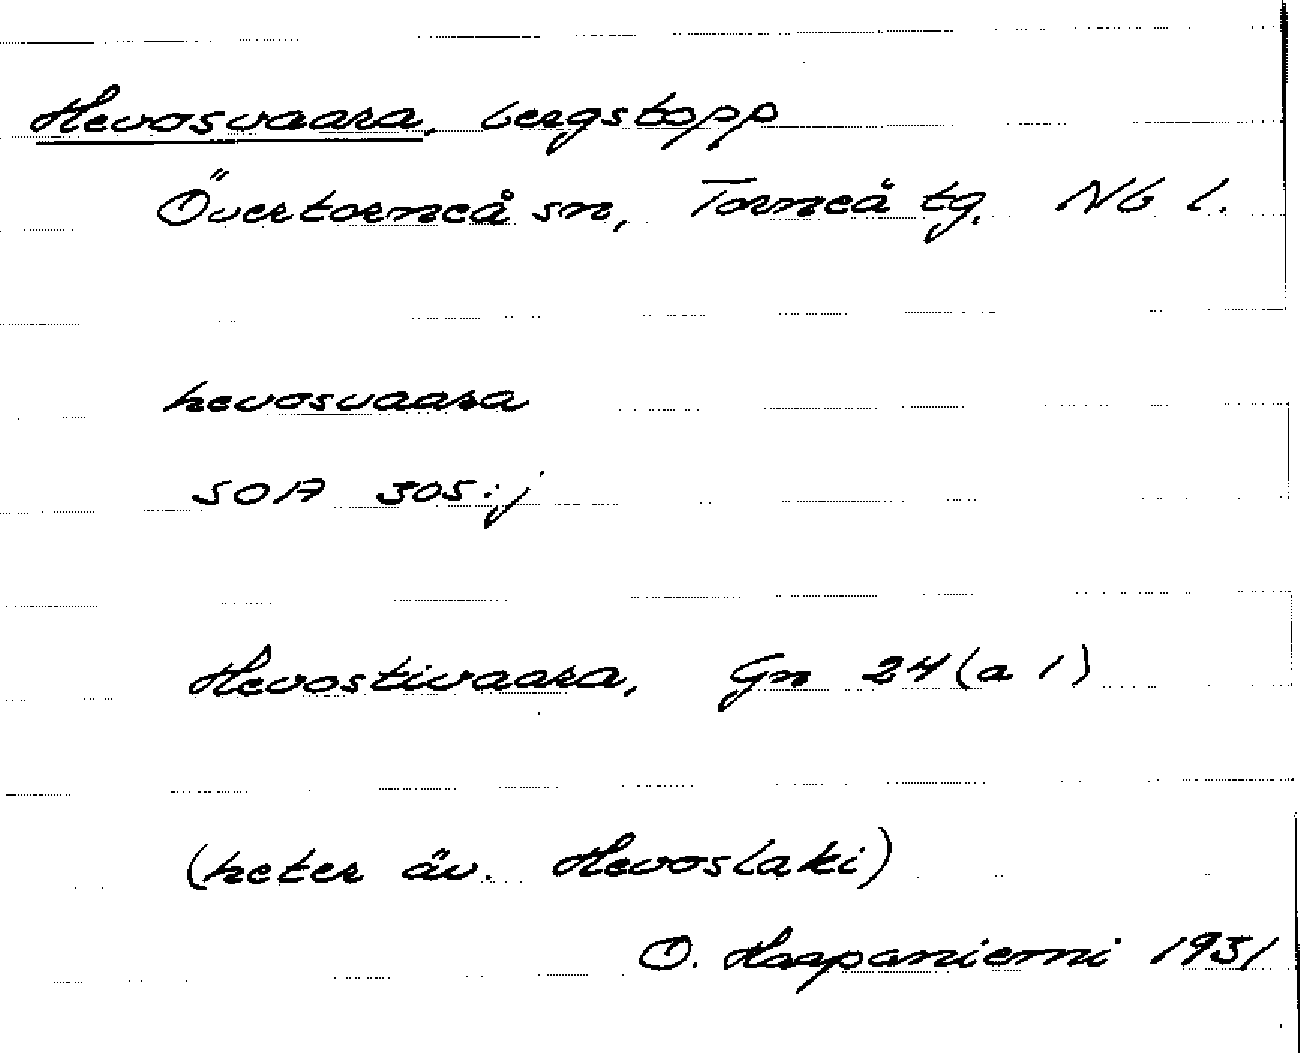 Hevosvaara, bergstopp
Övertorneå sn, Torneå tg. Nb l.
hevosvaara
SOA 305:j
Hevostivaara, Gn 24 (a 1)
(heter äv. Hevoslaki)
O. Haapaniemi 1931